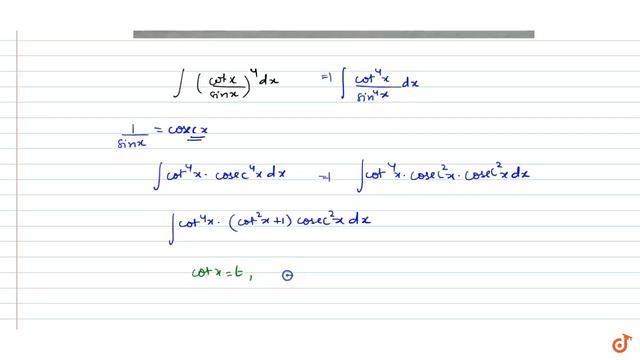 ∫ (cot x / sin x)^4 dx ⇒ ∫ cot^4 x / sin^4 x dx
1 / sin x = cosec x
∫ cot^4 x · cosec^4 x dx ⇒ ∫ cot^4 x · cosec^2 x · cosec^2 x dx
∫ cot^4 x · (cot^2 x + 1) cosec^2 x dx
cot x = t,